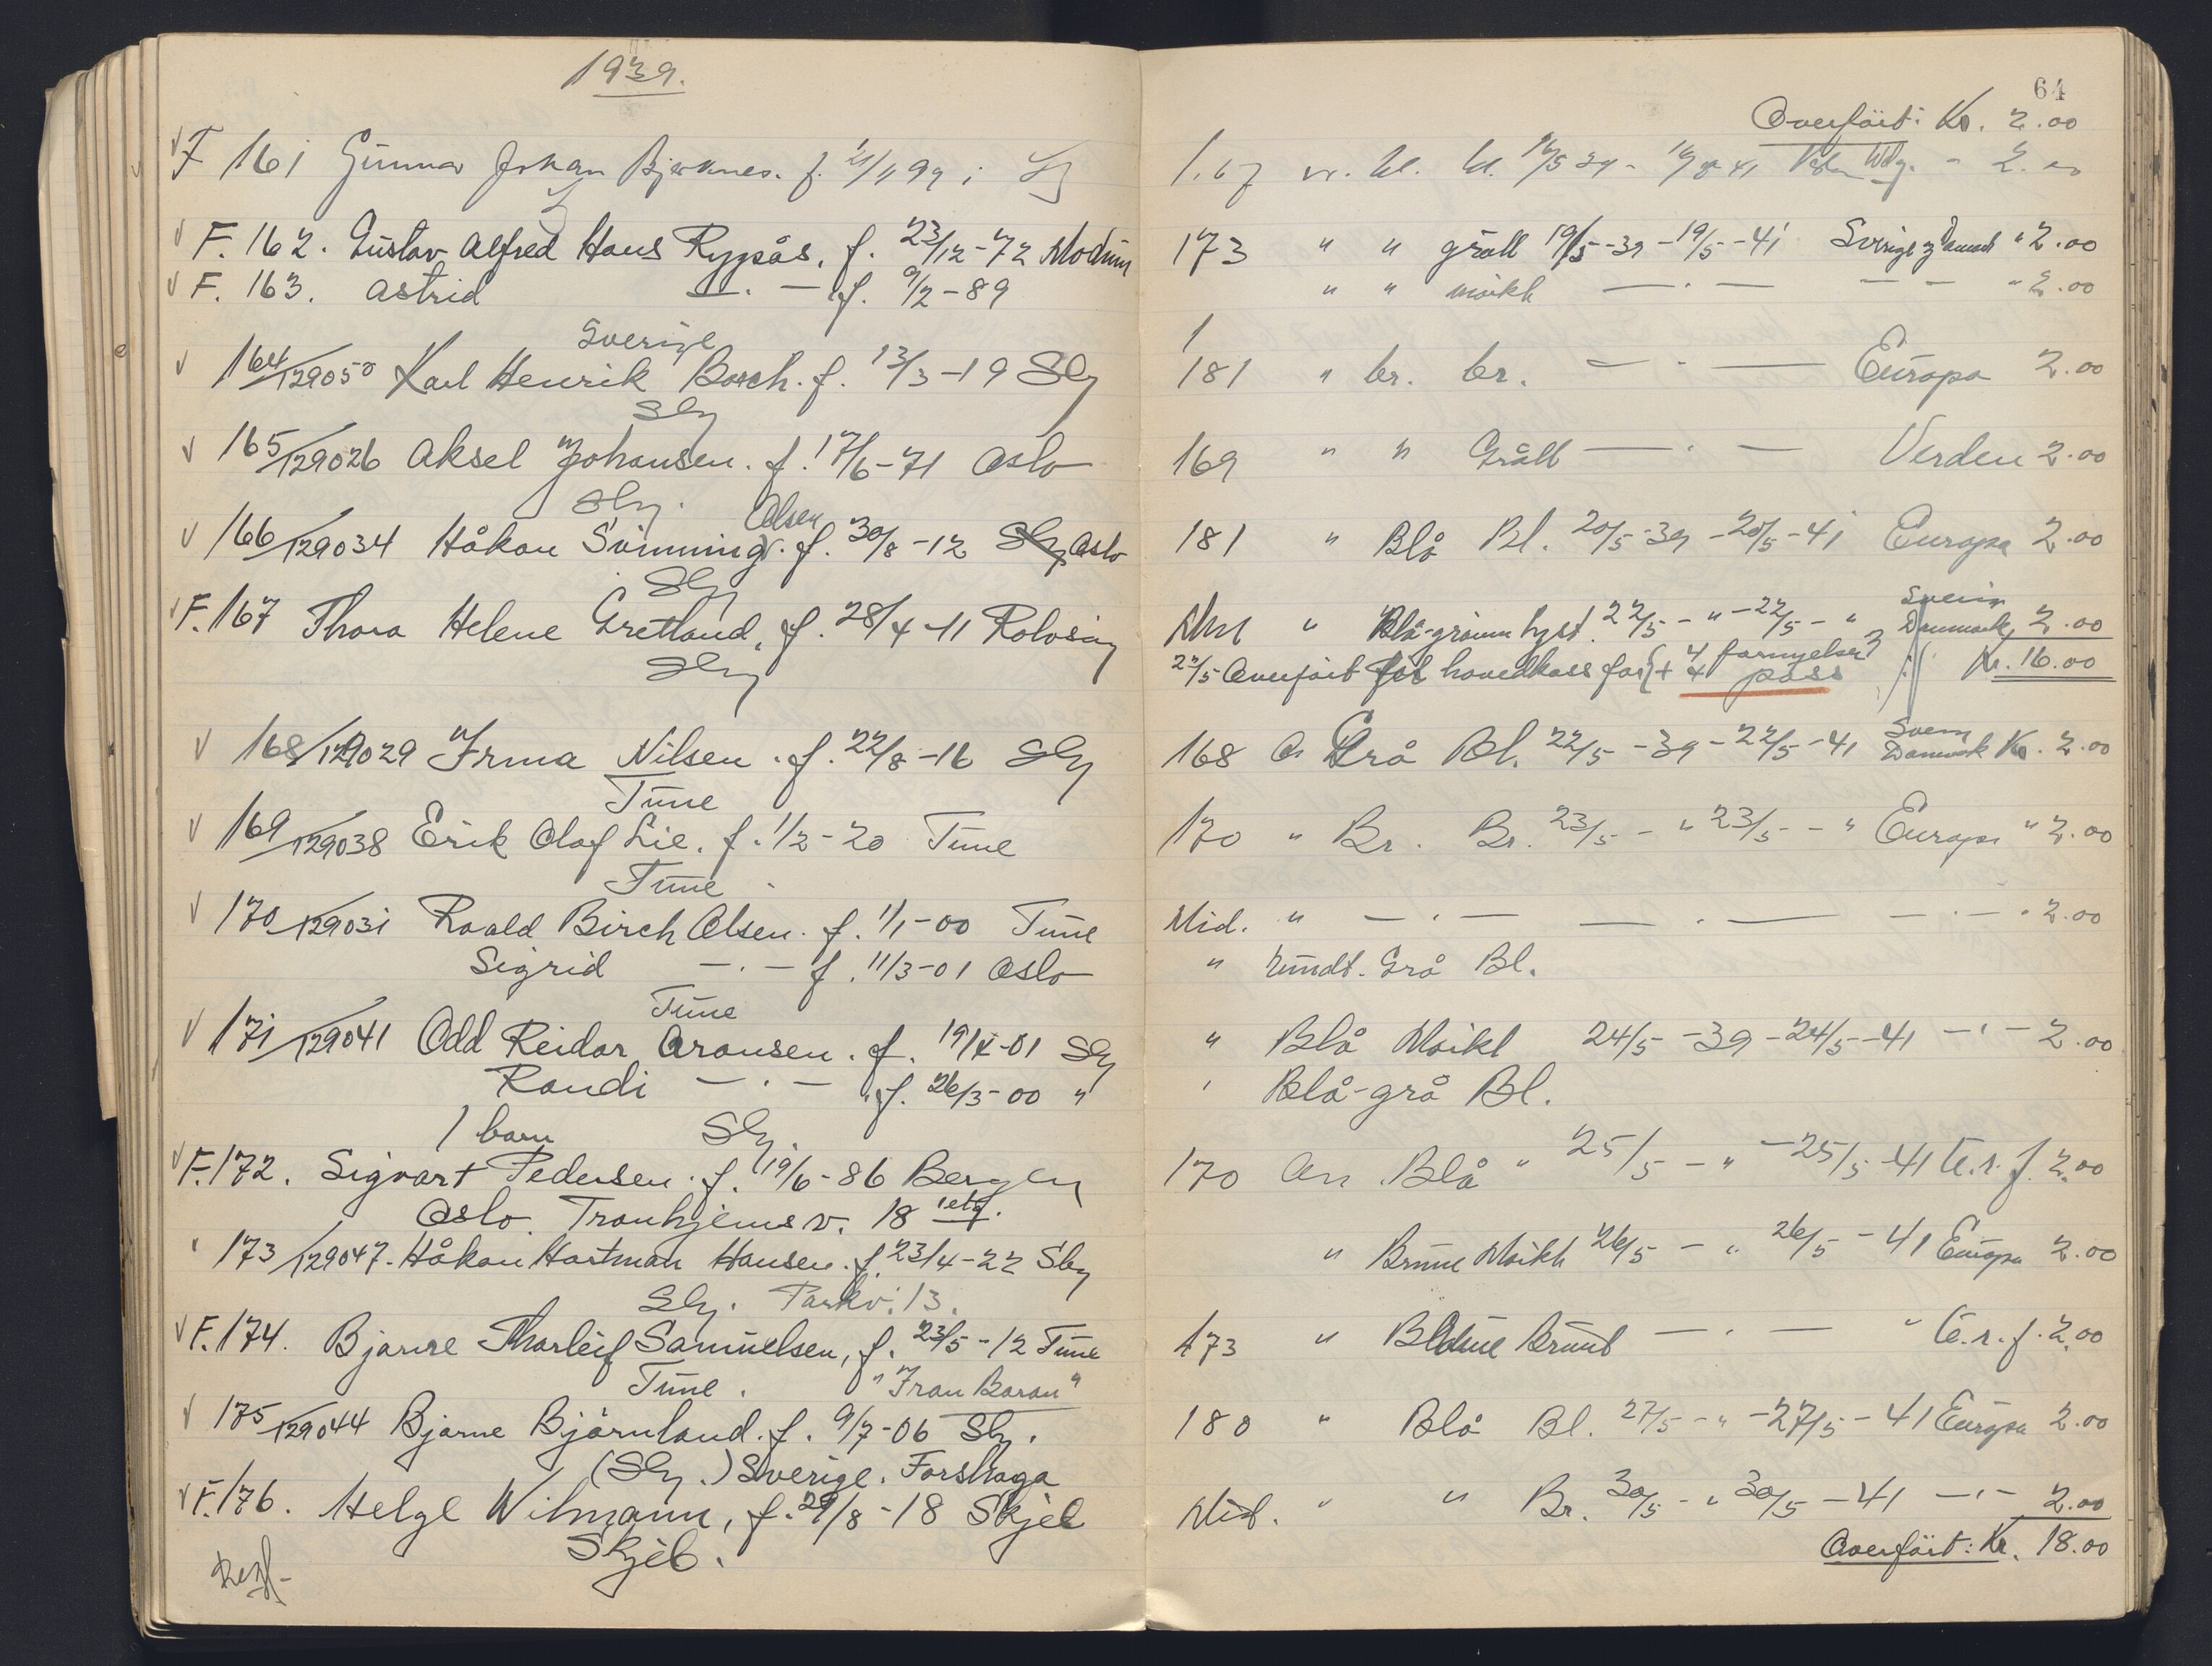 1939.
F 161 Gunnar Johan Bjerknes. f. 21/1 99 i
F. 162. Gustav Alfred Hans Rypsås, f. 23/12-72 Modum
F. 163. Astrid —·— f. 9/2-89
Sverige
164/129050 Karl Henrik Borch. f. 13/3-19 Sbg
Sbg
165/129026 Aksel Johansen. f. 17/6-71 Oslo
Sbg. Olsen
166/129034 Håkon Svinning. f. 30/8-12 Sbg Oslo
Sbg
F. 167 Thora Helene Gretland, f. 28/4-11 Rolvsøy
Sbg
168/129029 Irma Nilsen. f. 22/8-16 Sbg
Tune
169/129038 Erik Olaf Lie. f. 1/2-20 Tune
Tune
170/129031 Roald Birch Olsen. f. 1/1-00 Tune
Sigrid —·— f. 11/3-01 Oslo
Tune
171/129041 Odd Reidar Aronsen. f. 19/4-01 Sbg
Randi —·— f. 26/3-00 "
1 barn Sbg.
F. 172. Sigvart Pedersen. f. 19/6-86 Bergen
Oslo. Tronhjemsv. 18 etg.
173/129047. Håkon Hartman Hansen. f. 23/4-22 Sbg
Sbg. Parkv. 13.
F. 174. Bjarne Thorleif Samuelsen, f. 23/5-12 Tune
Tune. "Fran Baran"
175/129044 Bjarne Björnland. f. 9/7-06 Sbg.
(Sbg.) Sverige. Forshaga
F. 176. Helge Wilmann, f. 29/8-18 Skjeb
Skjeb.
64
Overfört: Kr. 2.00
1.67 bl. 2.00
173 " " grått 19/5-39-19/5-41 Sverige Danmark " 2.00
" " mörkt —·— — — " 2.00
181 " br. br. —·— Europa 2.00
169 " " Grått —·— Verden 2.00
181 " Blå Bl. 20/5-39-20/5-41 Europa 2.00
" Blå-grönn lyst. 22/5-"-22/5-" Danmark 2.00
22/5 Overfört hovedkass for 4 fornyelser
+ 4 pass Kr. 16.00
168 Grå Bl. 22/5-39-22/5-41 Danmark Kr. 2.00
170 " Br. Br. 23/5-" 23/5-" Europa " 2.00
Mid. " —·— —·— —·— " 2.00
" rundt. Grå Bl.
" Blå Mörkt 24/5-39-24/5-41 —·— 2.00
" Blå-grå Bl.
170 Blå " 25/5-"-25/5-41 E.r.f. 2.00
" Brune Mörkt 26/5-" 26/5-41 Europa 2.00
173 " Brunt —·— " E.r.f. 2.00
180 " Blå Bl. 27/5-"-27/5-41 Europa 2.00
Mid. " " Br. 30/5-" 30/5-41 —·— 2.00
Overfört: Kr. 18.00